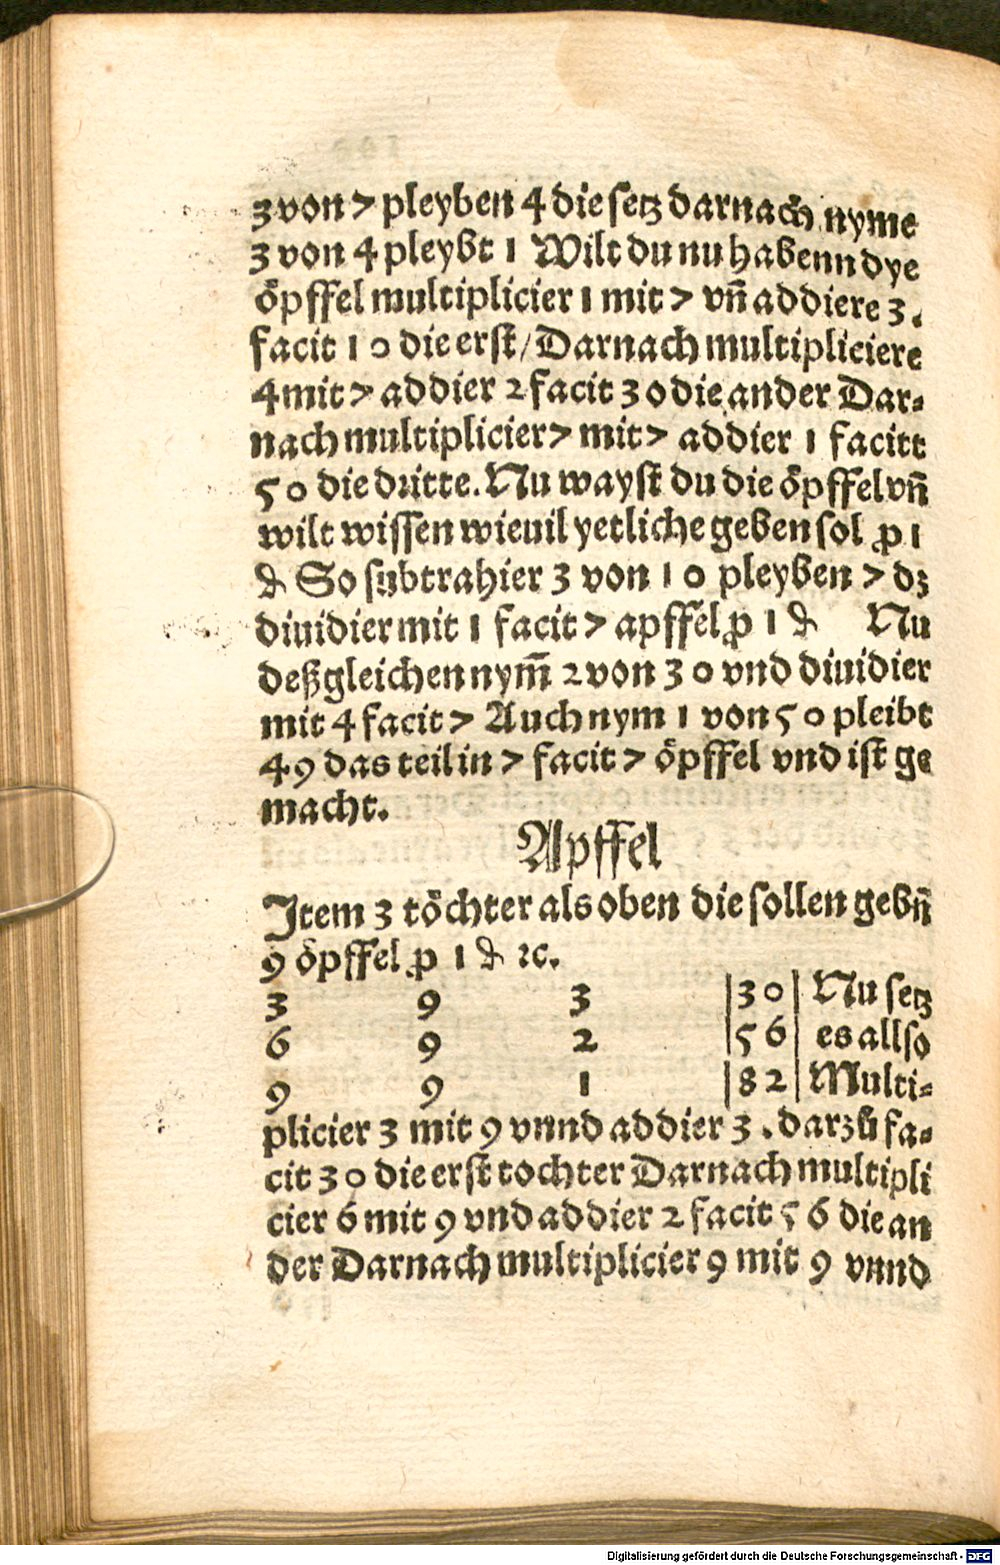 3 von 7 pleyben 4 die setz darnach nyme
3 von 4 pleybt 1 Wilt du nu habenn dye
öpffel multiplicier 1 mit 7 vñ addiere 3.
facit 10 die erst/Darnach multipliciere
4 mit 7 addier 2 facit 30 die ander Dar⸗
nach multiplicier 7 mit 7 addier 1 facitt
50 die dritte. Nu wayst du die öpffel vñ
wilt wissen wieuil yetliche geben sol ꝓ 1
₰ So subtrahier 3 von 10 pleyben 7 dz
diuidier mit 1 facit 7 apffel ꝓ 1 ₰ Nu
deßgleichen nym̄ 2 von 30 vnd diuidier
mit 4 facit 7 Auch nym 1 von 50 pleibt
49 das teil in 7 facit 7 öpffel vnd ist ge
macht.
Apffel
Item 3 töchter als oben die sollen gebn̄
9 öpffel ꝓ 1 ₰ ꝛc.
3 9 3 |30| Nu setz
6 9 2 |56| es allso
9 9 1 |82| Multi⸗
plicier 3 mit 9 vnnd addier 3. darzů fa⸗
cit 30 die erst tochter Darnach multipli
cier 6 mit 9 vnd addier 2 facit 56 die an
der Darnach multiplicier 9 mit 9 vnnd
Digitalisierung gefördert durch die Deutsche Forschungsgemeinschaft - DFG